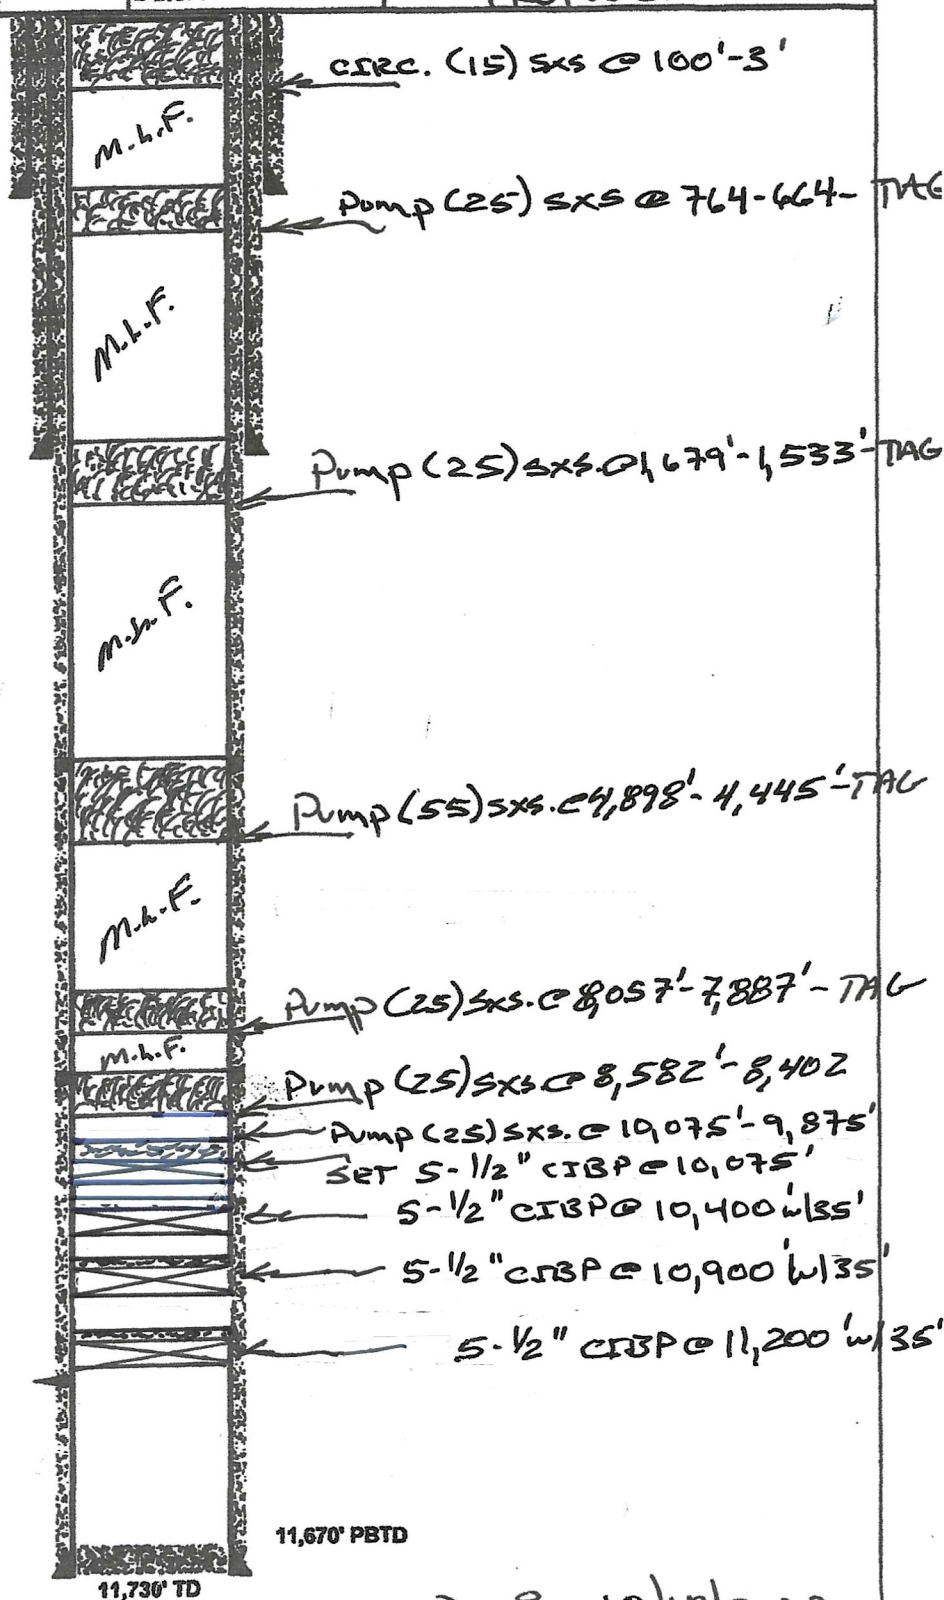 CIRC. (15) SXS @ 100'-3'
M.L.F.
Pump (25) SXS @ 764-664- TAG
M.L.F.
Pump (25) SXS. @ 1,679'-1,533'-TAG
M.L.F.
Pump (55) SXS. @ 4,898'-4,445'-TAG
M.L.F.
Pump (25) SXS. @ 8,057'-7,887'-TAG
M.L.F.
Pump (25) SXS @ 8,582'-8,402
Pump (25) SXS. @ 10,075'-9,875'
SET 5-1/2" CIBP @ 10,075'
5-1/2" CIBP @ 10,400' w/35'
5-1/2" CIBP @ 10,900' w/35'
5-1/2" CIBP @ 11,200' w/35'
11,670' PBTD
11,730' TD